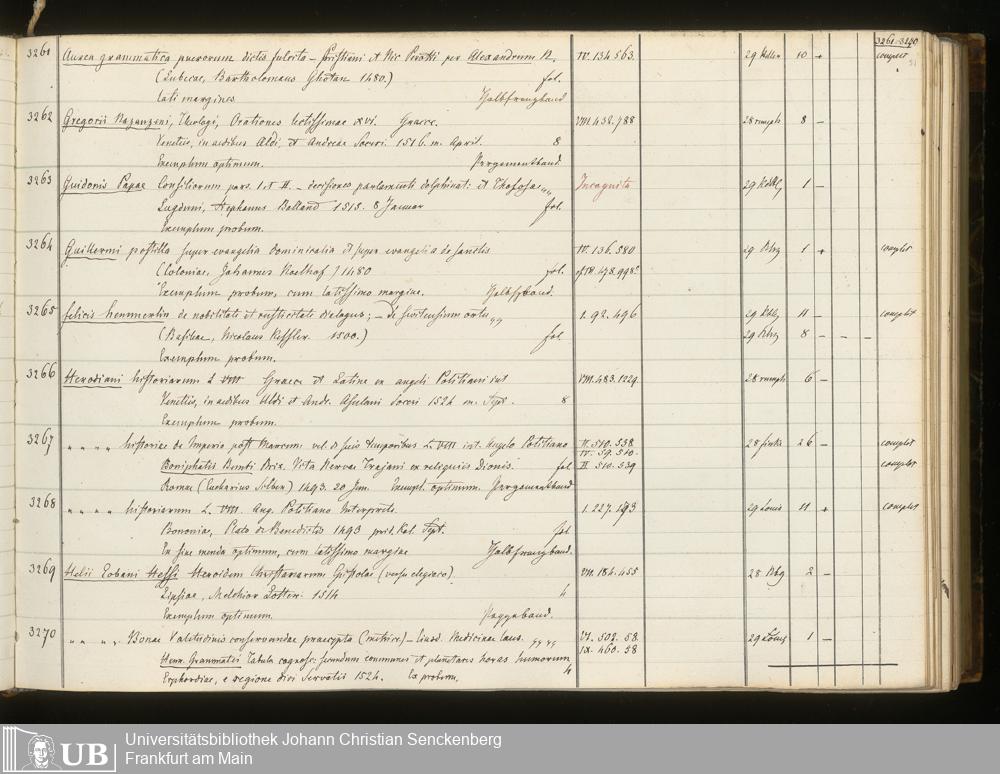 3261-3270
3261 Aurea grammatica puerorum dictis fulcita – Prisciani et Nic Perotti per Alexandrum IV. 134 563. 29 10 + complet
(Lubecae, Bartholomaeus Ghotan 1480.) fol.
Lati margines. Halbfranzband
3262 Gregorii Nazanzeni, Theologi, Orationes lectissimae XVI. Graece. VIII 432.788 28 rumph 8 –
Venetiis, in aedibus Aldi et Andreae Soceri 1516. m. April. 8
Exemplum optimum. Pergamentband.
3263 Guidonis Papae Consiliorum pars I et II. – decisiones parlamenti dolphinat: et Incognita 29 1 –
Lugduni, Stephanus Balland 1515. 8 Januar fol.
Exemplum probum.
3264 Guillermi postilla super evangelia dominicalia et super evangelia de sanctis IV. 136. 580 29 1 + complet
(Coloniae, Johannes Koelhof) 1480 fol. cf IV. 478.998
Exemplum probum, cum latissimo margine. Halbfrband.
3265 felicis hemmerlin de nobilitate et rusticitate dialogus; – de suitensium ortu 1. 92. 496 29 11 – complet
(Basileae, Nicolaus Kessler 1500.) fol. 29 8 – – –
Exemplum probum.
3266 Herodiani historiarum L VIII Graece et Latine ex angeli Politiani int VIII. 483.1229. 28 rumph 6 –
Venetiis, in aedibus Aldi et Andr. Asulani Soceri 1524 m. Sept. 8
Exemplum probum.
3267 " " " " historiae de Imperio post Marcum vel de suis temporibus L VIII int. Angelo Politiano II. 510. 538 28 finks 26 – complet
IV. 59. 510.
Boniphatii Bembi Brix. Vita Nervae Trajani ex reliquiis Dionis. fol. II. 510. 539 complet
Romae (Eucharius Silber) 1493. 20 Jun. Exempl. optimum. Pergamentband
3268 " " " " historiarum L VIII. Ang. Politiano Interprete. 1. 227. 193 29 Louis 11 + complet
Bononiae, Plato de Benedictis 1493 prid. Kal. Sept. fol.
In fine menda optimum, cum latissimo margine Halbfranzband.
3269 Helii Eobani Hessi Heroidum Christianarum Epistolae (versu elegiaco). VII. 184. 455 28 2 –
Lipsiae, Melchior Lotter. 1514 4
Exemplum optimum. Pappband.
3270 " " " " Bonae Valetudinis conservandae praecepta (metrice) – Eiusd. Medicinae laus. " " VI. 502. 58. 29 Louis 1 –
IX. 460. 58
Henr. Grammatei Tabula cognosc: secundum communes et planetares horas humorum
Erphordiae, e regione divi Servatii 1524. Ex probum. 4
UB Universitätsbibliothek Johann Christian Senckenberg
Frankfurt am Main